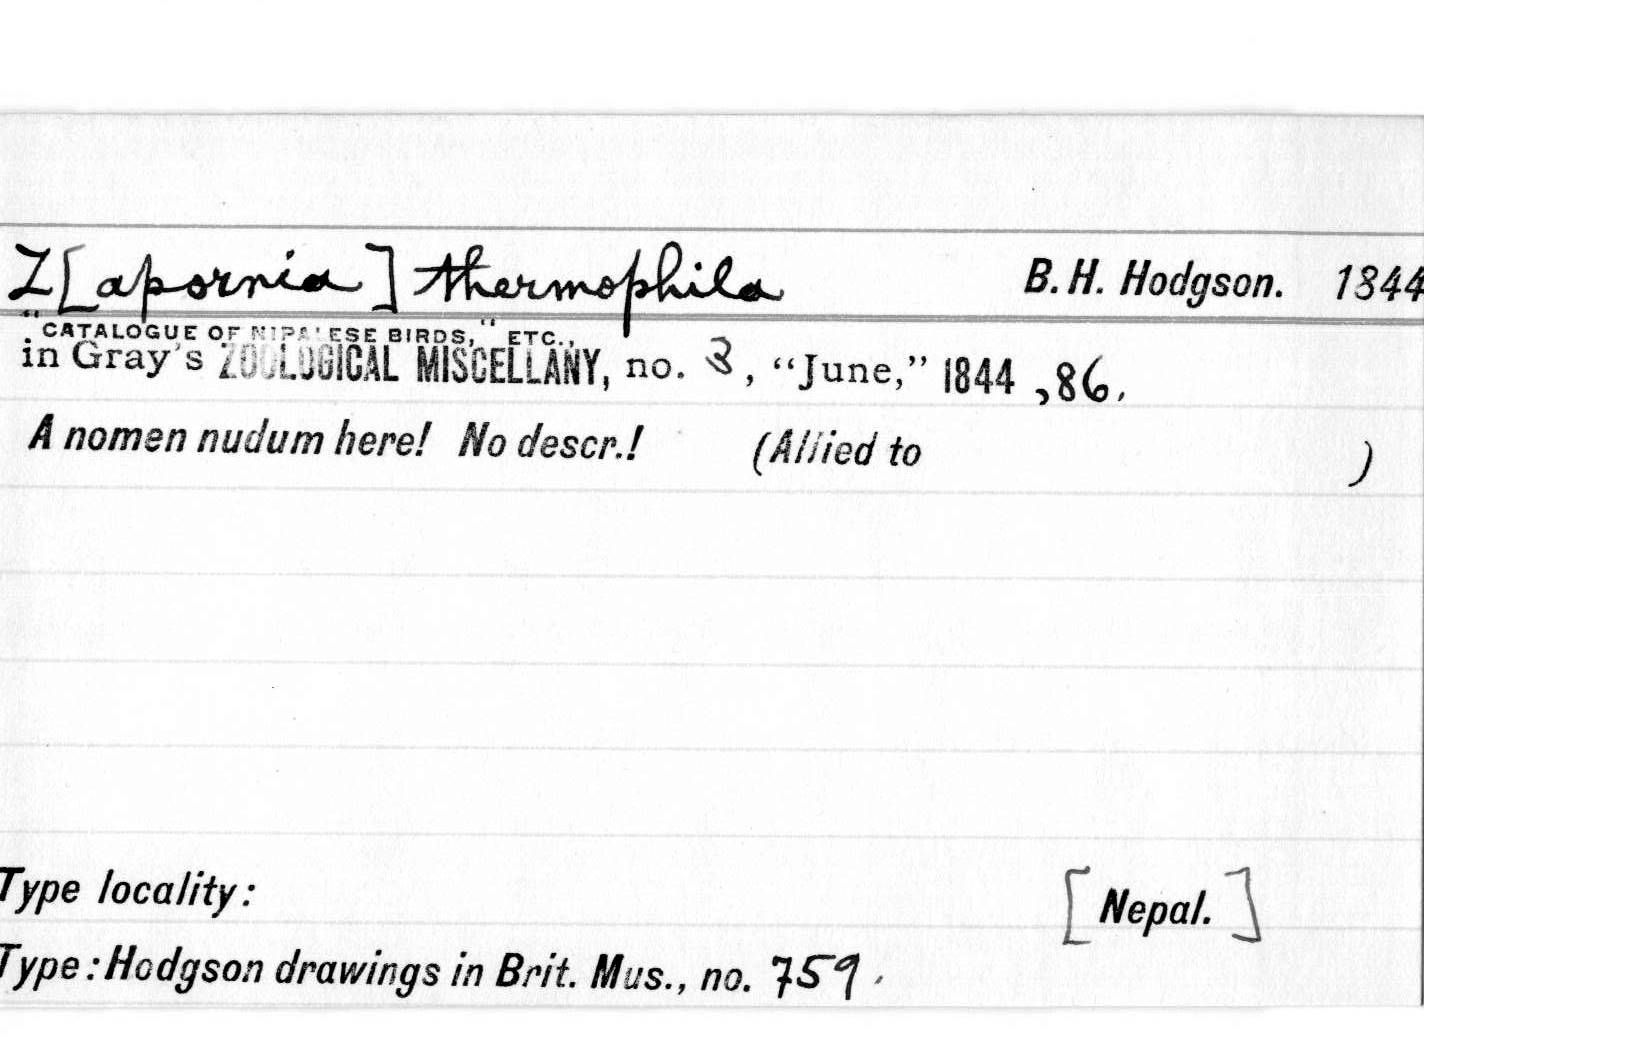 Z[apornia] thermophila B. H. Hodgson. 1844
"CATALOGUE OF NIPALESE BIRDS," ETC.,
in Gray's ZOOLOGICAL MISCELLANY, no. 3, "June," 1844, 86.
A nomen nudum here! No descr.! (Allied to )
Type locality: [Nepal.]
Type: Hodgson drawings in Brit. Mus., no. 759.